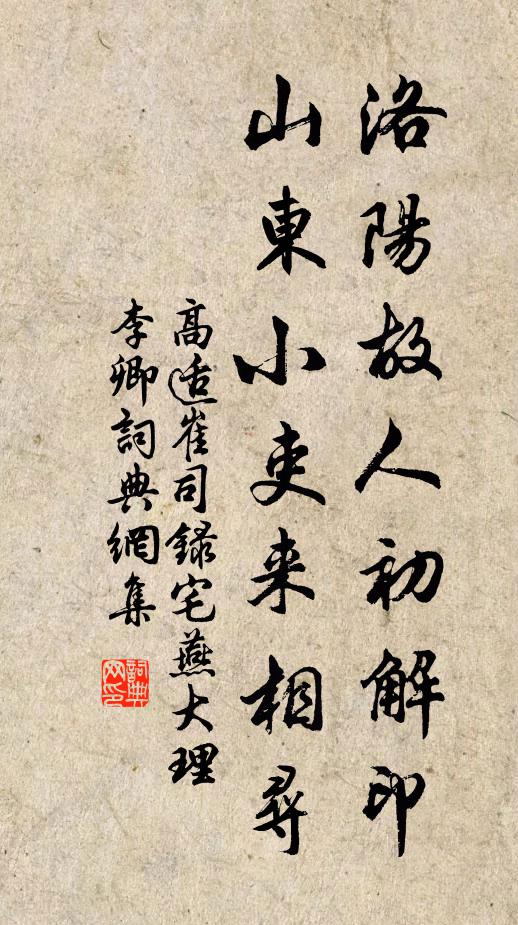 洛陽故人初解印
山東小吏来相尋
高適崔司録宅燕大理
李卿詞典網集
詞典網印